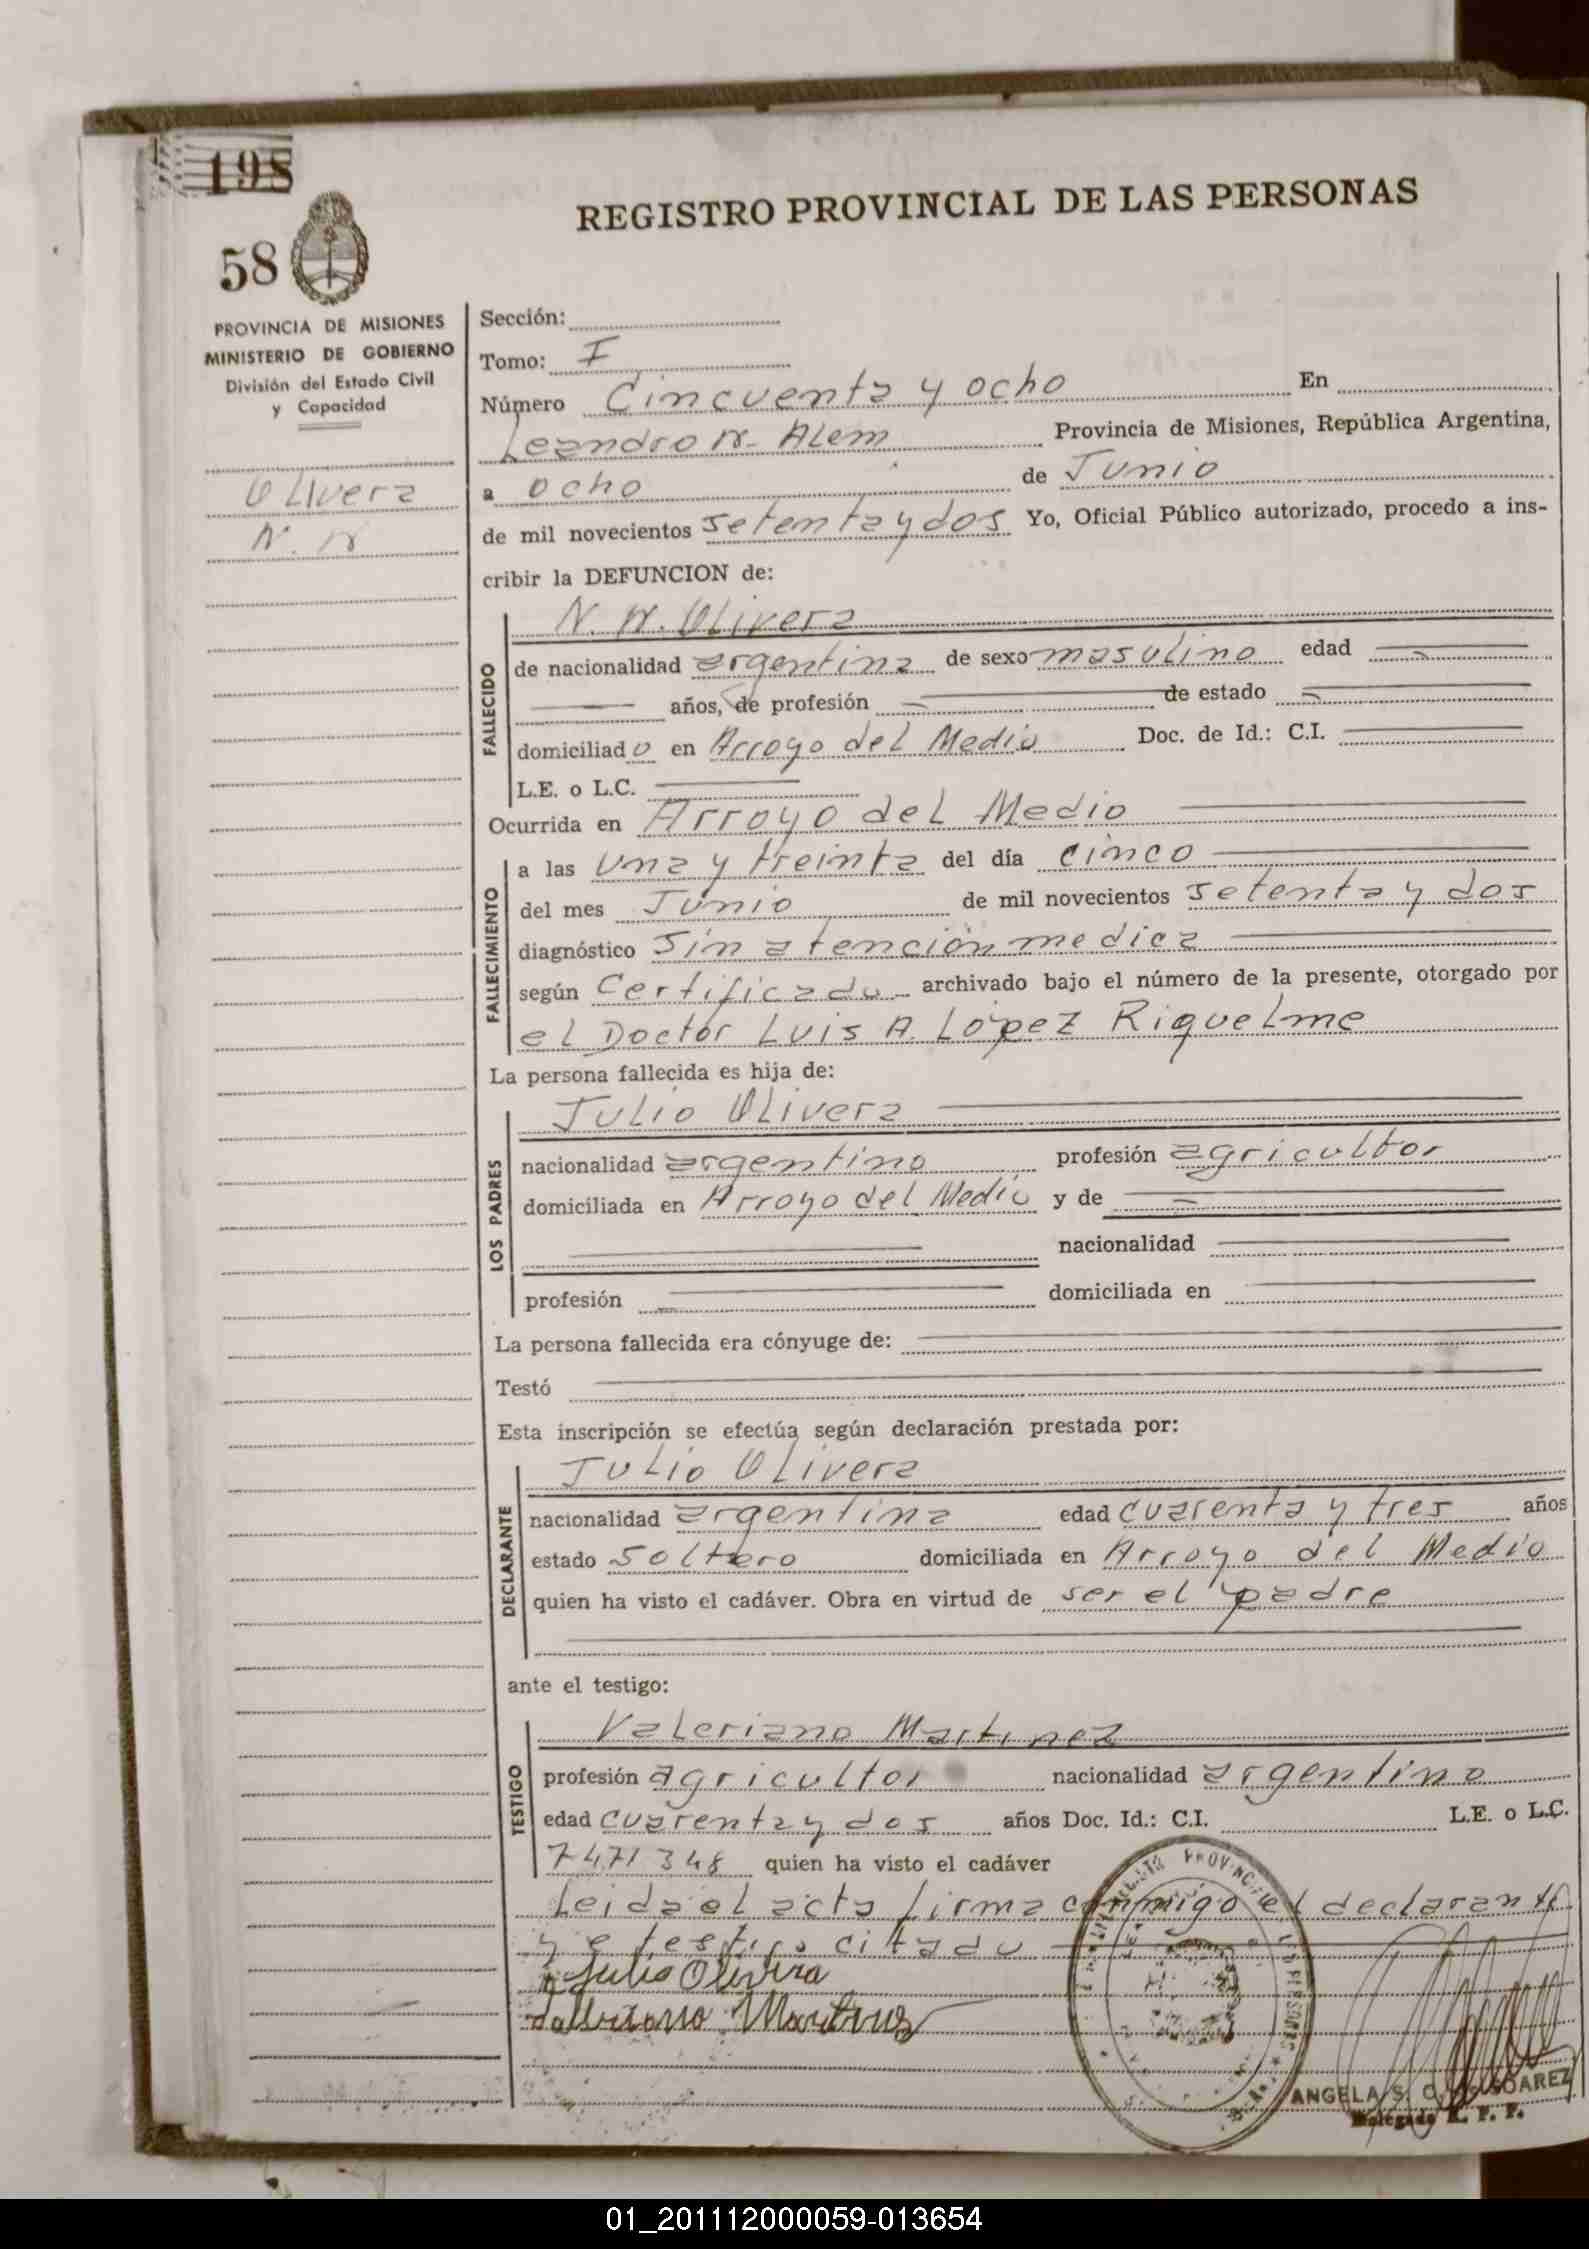 198
58
REGISTRO PROVINCIAL DE LAS PERSONAS
PROVINCIA DE MISIONES
MINISTERIO DE GOBIERNO
División del Estado Civil
y Capacidad
Olivera
N. N
Sección:
Tomo: I
Número Cincuenta y ocho En
Leandro N. Alem Provincia de Misiones, República Argentina,
a ocho de Junio
de mil novecientos setenta y dos Yo, Oficial Público autorizado, procedo a ins-
cribir la DEFUNCION de:
N. N. Olivera
FALLECIDO
de nacionalidad argentina de sexo masulino edad
años, de profesión de estado
domiciliado en Arroyo del Medio Doc. de Id.: C.I.
L.E. o L.C.
Ocurrida en Arroyo del Medio
FALLECIMIENTO
a las una y treinta del día cinco
del mes Junio de mil novecientos setenta y dos
diagnóstico sin atención medica
según Certificado archivado bajo el número de la presente, otorgado por
el Doctor Luis A. López Riquelme
La persona fallecida es hija de:
LOS PADRES
Julio Olivera
nacionalidad argentino profesión agricultor
domiciliada en Arroyo del Medio y de
nacionalidad
profesión domiciliada en
La persona fallecida era cónyuge de:
Testó
Esta inscripción se efectúa según declaración prestada por:
DECLARANTE
Julio Olivera
nacionalidad argentina edad cuarenta y tres años
estado soltero domiciliada en Arroyo del Medio
quien ha visto el cadáver. Obra en virtud de ser el padre
ante el testigo:
TESTIGO
Valeriano Martinez
profesión agricultor nacionalidad argentino
edad cuarenta y dos años Doc. Id.: C.I. L.E. o L.C.
7471348 quien ha visto el cadáver
Leida el acta firma conmigo el declarante
y e testigo citado
Julio Olivera
Martinez
ANGELA S. C. SOAREZ
Delegada R. P. P.
01_201112000059-013654